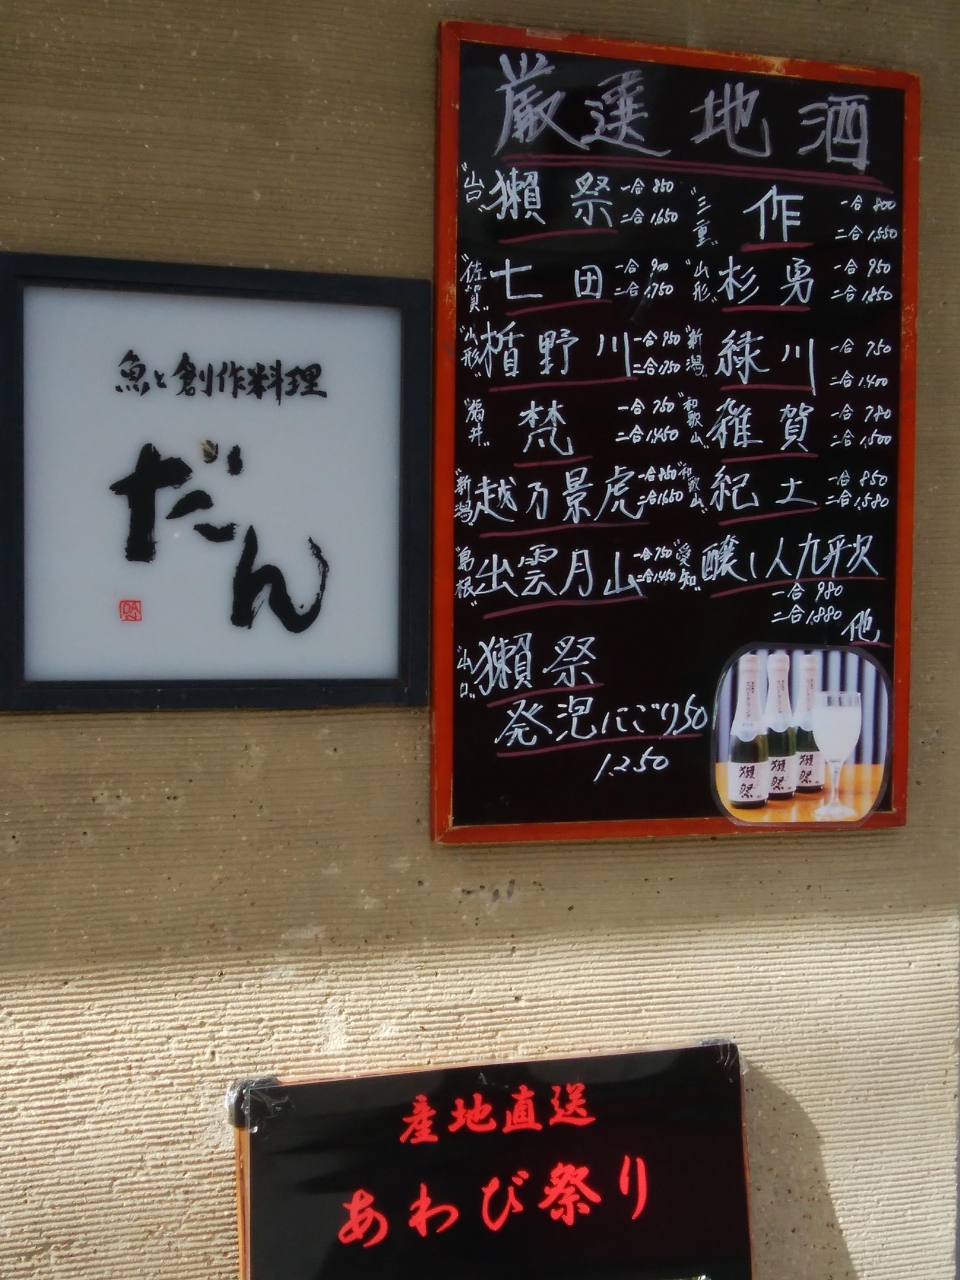 魚と創作料理
だん
厳選地酒
"山口" 獺祭 一合 850 二合 1,650
"三重" 作 一合 800 二合 1,550
"佐賀" 七田 一合 900 二合 1,750
"山形" 杉勇 一合 950 二合 1,850
"山形" 楯野川 一合 950 二合 1,750
"新潟" 緑川 一合 750 二合 1,400
"福井" 梵 一合 750 二合 1,450
"和歌山" 雑賀 一合 780 二合 1,500
"新潟" 越乃景虎 一合 850 二合 1,650
"和歌山" 紀土 一合 850 二合 1,580
"島根" 出雲月山 一合 750 二合 1,450
"愛知" 醸し人九平次
一合 980
二合 1,880
他
"山口" 獺祭
発泡にごり50
1,250
獺祭 獺祭 獺祭
産地直送
あわび祭り